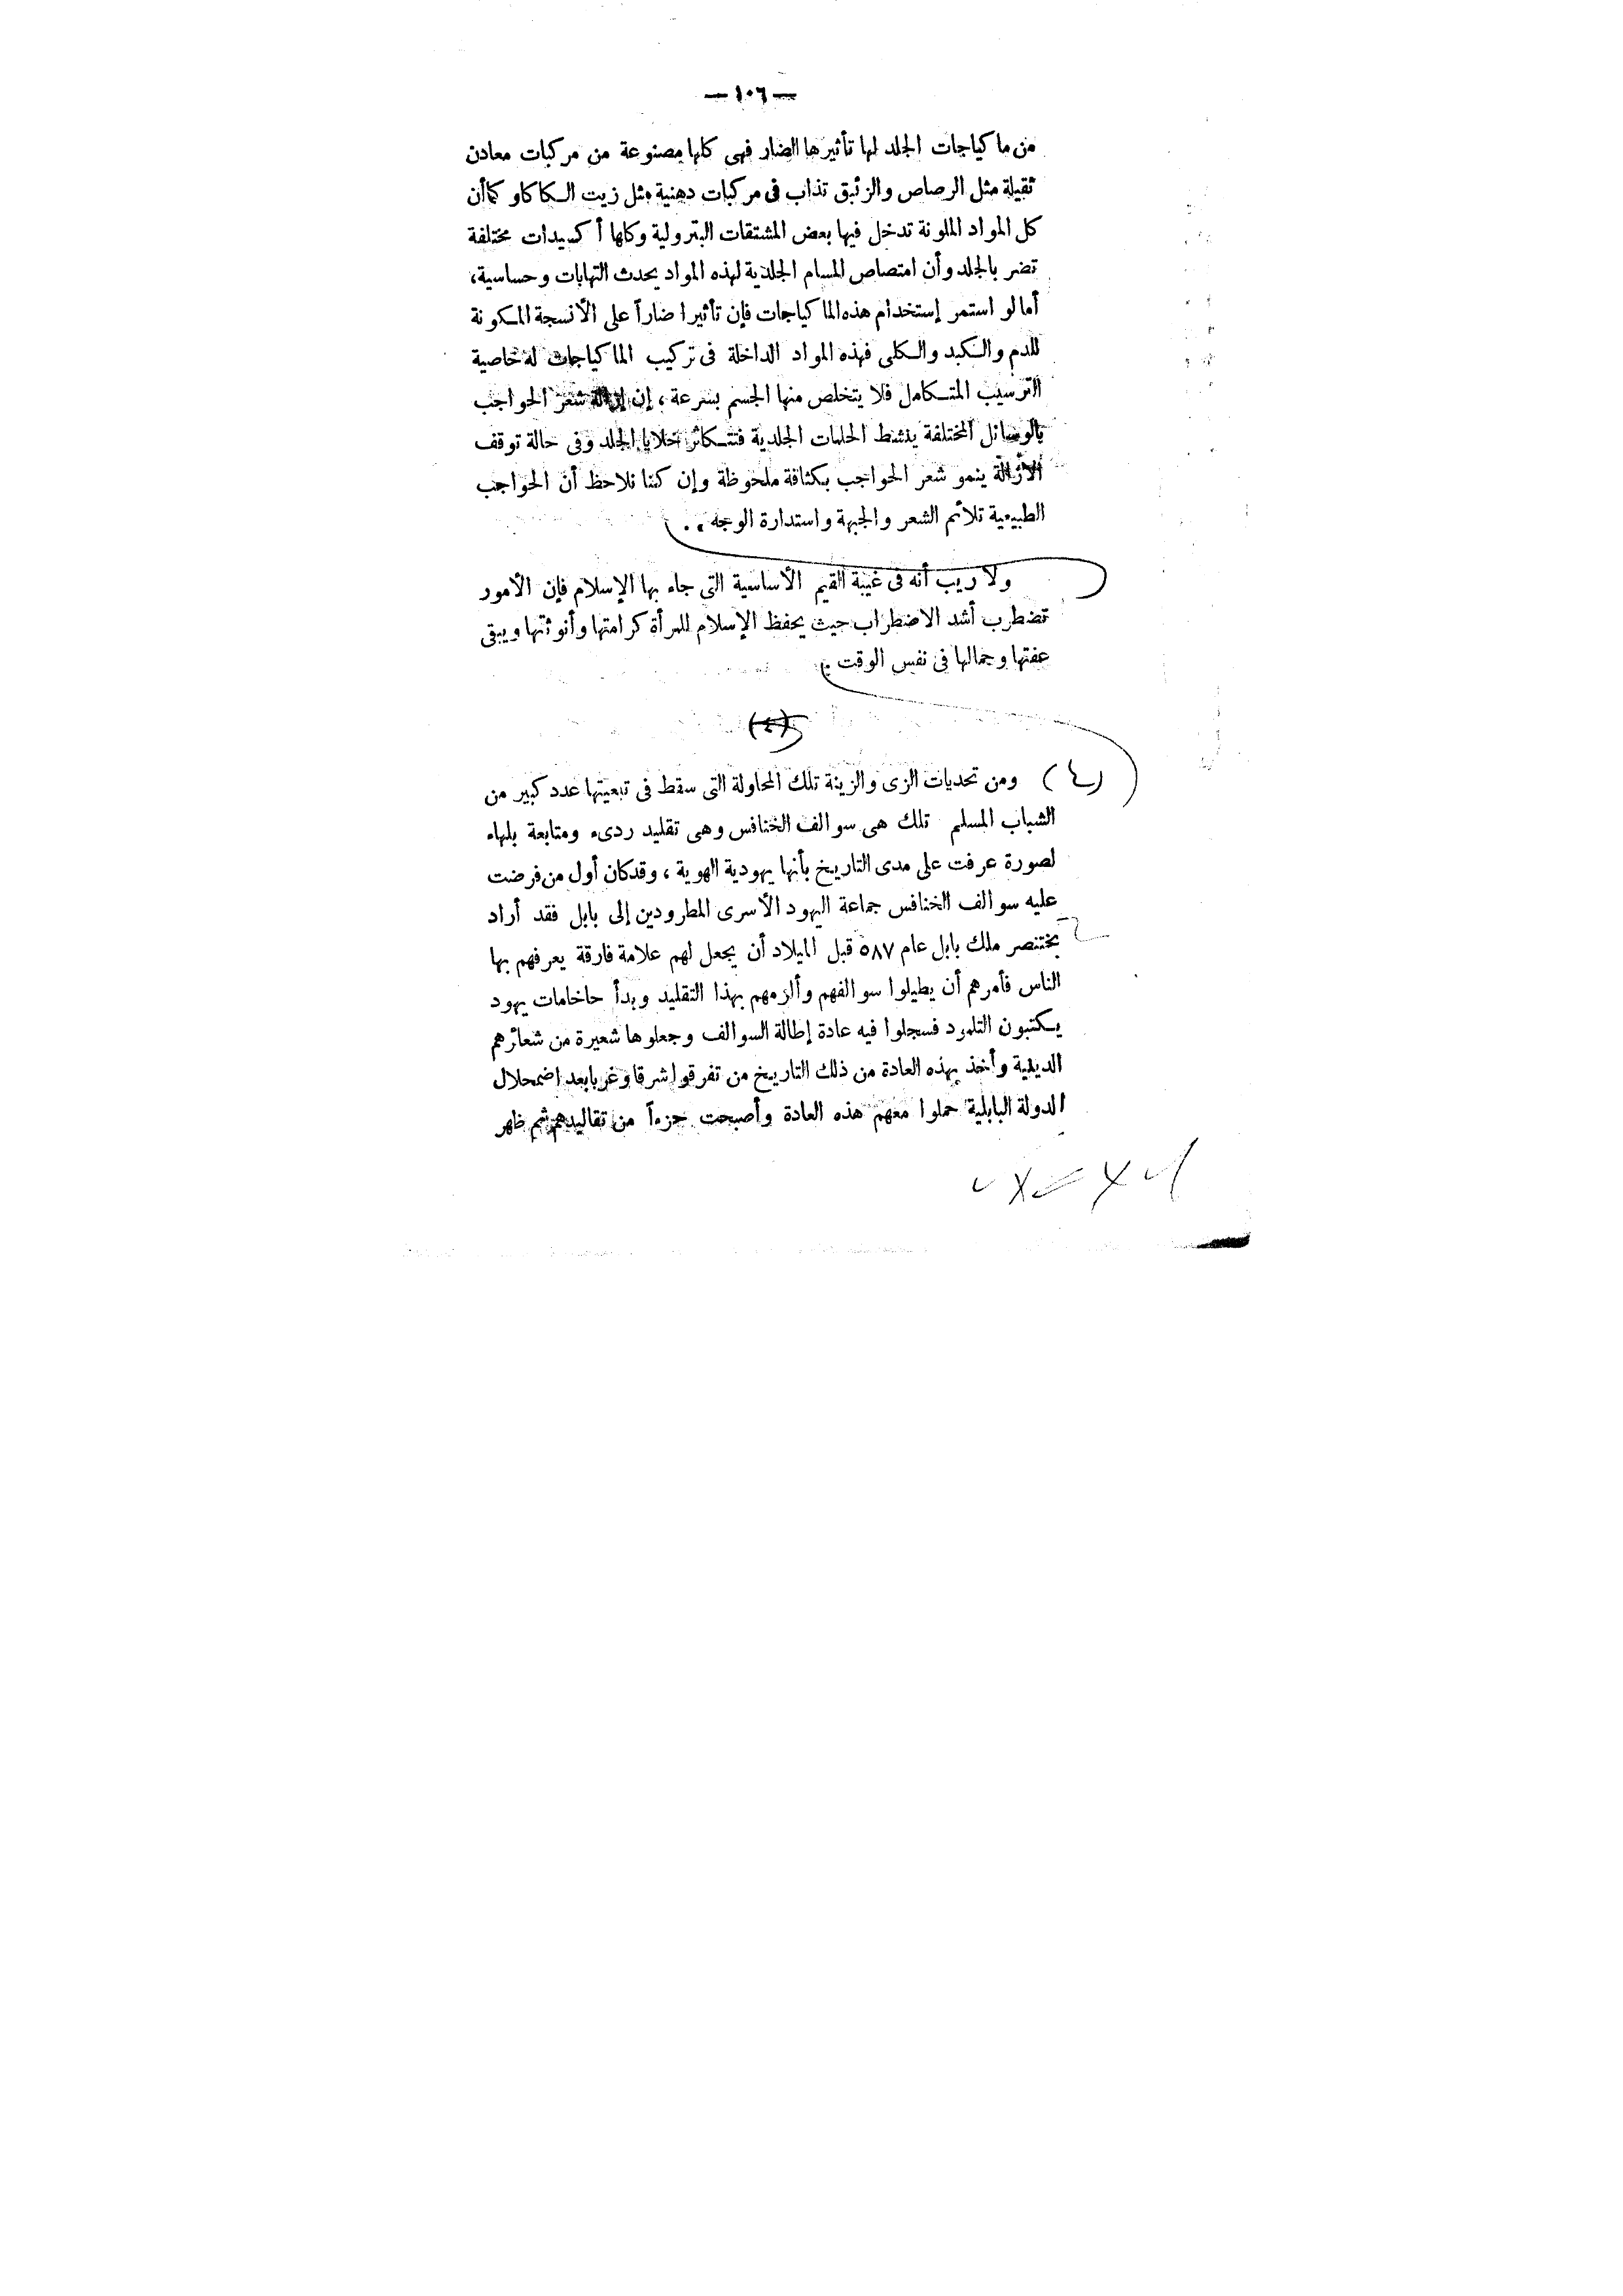 — ١٠٦ —
من ماكياجات الجلد لها تأثيرها الضار فهى كلها مصنوعة من مركبات معادن
ثقيلة مثل الرصاص والزئبق تذاب فى مركبات دهنية مثل زيت الكاكاو كما أن
كل المواد الملونة تدخل فيها بعض المشتقات البترولية وكلها أكسيدات مختلفة
تضر بالجلد وأن امتصاص المسام الجلدية لهذه المواد يحدث التهابات وحساسية،
أما لو استمر إستخدام هذه الماكياجات فإن تأثيرا ضاراً على الأنسجة المكونة
للدم والكبد والكلى فهذه المواد الداخلة فى تركيب الماكياجات له خاصية
الترسيب المتكامل فلا يتخلص منها الجسم بسرعة ، إن إزالة شعر الحواجب
بالوسائل المختلفة ينشط الحلمات الجلدية فتتكاثر خلايا الجلد وفى حالة توقف
الأزالة ينمو شعر الحواجب بكثافة ملحوظة وإن كنا نلاحظ أن الحواجب
الطبيعية تلائم الشعر والجبهة واستدارة الوجه . .
ولا ريب أنه فى غيبة القيم الأساسية التى جاء بها الإسلام فإن الأمور
تضطرب أشد الاضطراب حيث يحفظ الإسلام للمرأة كرامتها وأنوثتها ويبقى
عفتها وجمالها فى نفس الوقت .
(٤)
(٤) ومن تحديات الزى والزينة تلك المحاولة التى سقط فى تبعيتها عدد كبير من
الشباب المسلم تلك هى سوالف الخنافس وهى تقليد ردىء ومتابعة بلهاء
لصورة عرفت على مدى التاريخ بأنها يهودية الهوية ، وقد كان أول من فرضت
عليه سوالف الخنافس جماعة اليهود الأسرى المطرودين إلى بابل فقد أراد
بختنصر ملك بابل عام ٥٨٧ قبل الميلاد أن يجعل لهم علامة فارقة يعرفهم بها
الناس فأمرهم أن يطيلوا سوالفهم وألزمهم بهذا التقليد وبدأ حاخامات يهود
يكتبون التلمود فسجلوا فيه عادة إطالة السوالف وجعلوها شعيرة من شعائرهم
الدينية وأخذ بهذه العادة من ذلك التاريخ من تفرقوا شرقا وغربا بعد اضمحلال
الدولة البابلية حملوا معهم هذه العادة وأصبحت جزءاً من تقاليدهم ثم ظهر